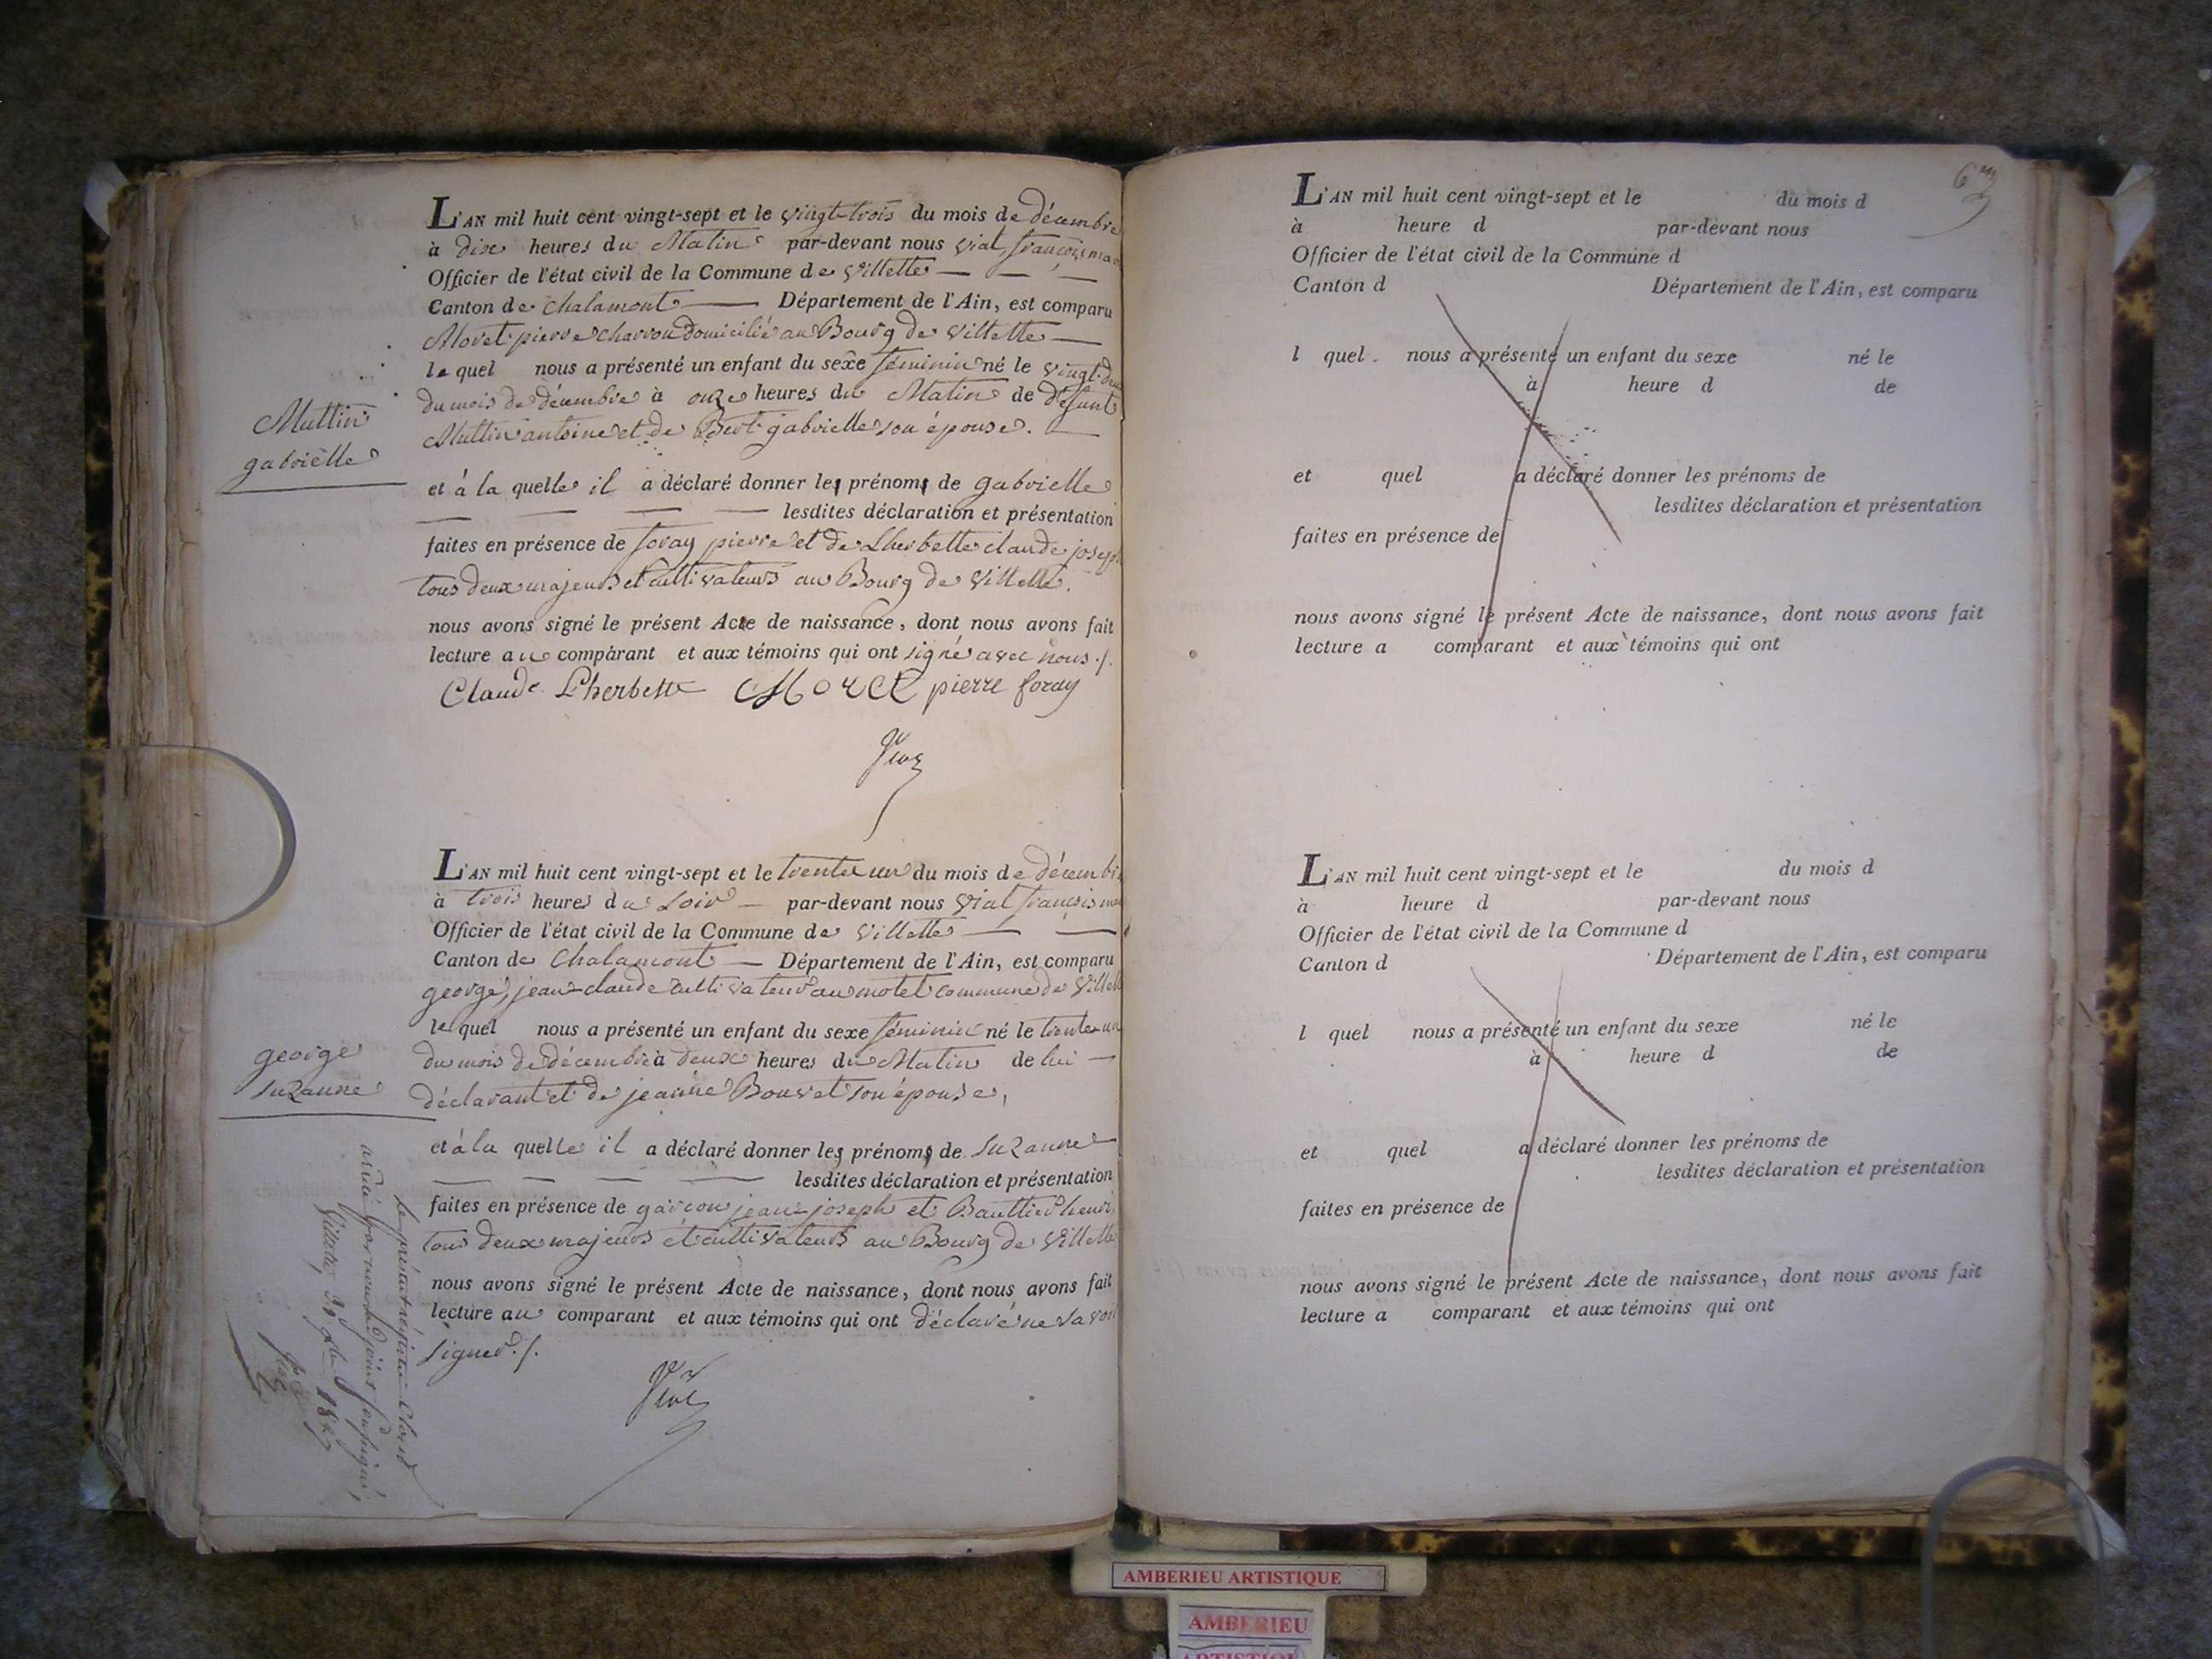 L'AN mil huit cent vingt-sept et le vingt-trois du mois de décembre
à dix heures du Matin par-devant nous vial, françois
Officier de l'état civil de la Commune de villette
Canton de Chalamont Département de l'Ain, est comparu
Moret pierre charron domicilié au Bourg de villette
lequel nous a présenté un enfant du sexe féminin né le vingt
du mois de décembre à onze heures du Matin de défunt
Muttin antoine et de Bert gabrielle son épouse.
Muttin
gabrielle
et à la quelle il a déclaré donner les prénoms de gabrielle
lesdites déclaration et présentation
faites en présence de foray pierre et de Lherbette claude joseph
tous deux majeurs et cultivateurs au Bourg de Villette.
nous avons signé le présent Acte de naissance, dont nous avons fait
lecture au comparant et aux témoins qui ont signé avec nous ./.
Claude Lherbette Moret pierre foray
L'AN mil huit cent vingt-sept et le trente un du mois de décembre
à trois heures du soir par-devant nous Vial françois
Officier de l'état civil de la Commune de villette
Canton de Chalamont Département de l'Ain, est comparu
george, jean-claude cultivateur au motet commune de Villette
lequel nous a présenté un enfant du sexe féminin né le trente un
du mois de décembre à deux heures du Matin de lui
déclarant et de jeanne Bouvet son épouse,
george
suzanne
et à la quelle il a déclaré donner les prénoms de suzanne
lesdites déclaration et présentation
faites en présence de garçon jean-joseph et Bauttier henri,
tous deux majeurs et cultivateurs au Bourg de villette
nous avons signé le présent Acte de naissance, dont nous avons fait
lecture au comparant et aux témoins qui ont déclaré ne savoir
signer ./.
le présent régistre clos et
arrêté par nous adjoint soussigné,
Villette, 31 Xbre 1827
L'AN mil huit cent vingt-sept et le du mois d
à heure d par-devant nous
Officier de l'état civil de la Commune d
Canton d Département de l'Ain, est comparu
l quel nous a présenté un enfant du sexe né le
à heure d de
et quel a déclaré donner les prénoms de
lesdites déclaration et présentation
faites en présence de
nous avons signé le présent Acte de naissance, dont nous avons fait
lecture a comparant et aux témoins qui ont
L'AN mil huit cent vingt-sept et le du mois d
à heure d par-devant nous
Officier de l'état civil de la Commune d
Canton d Département de l'Ain, est comparu
l quel nous a présenté un enfant du sexe né le
à heure d de
et quel a déclaré donner les prénoms de
lesdites déclaration et présentation
faites en présence de
nous avons signé le présent Acte de naissance, dont nous avons fait
lecture a comparant et aux témoins qui ont
AMBERIEU ARTISTIQUE
AMBERIEU
ARTISTIQU